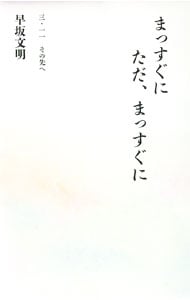 まっすぐに
ただ、まっすぐに
三・一一 その先へ
早坂文明